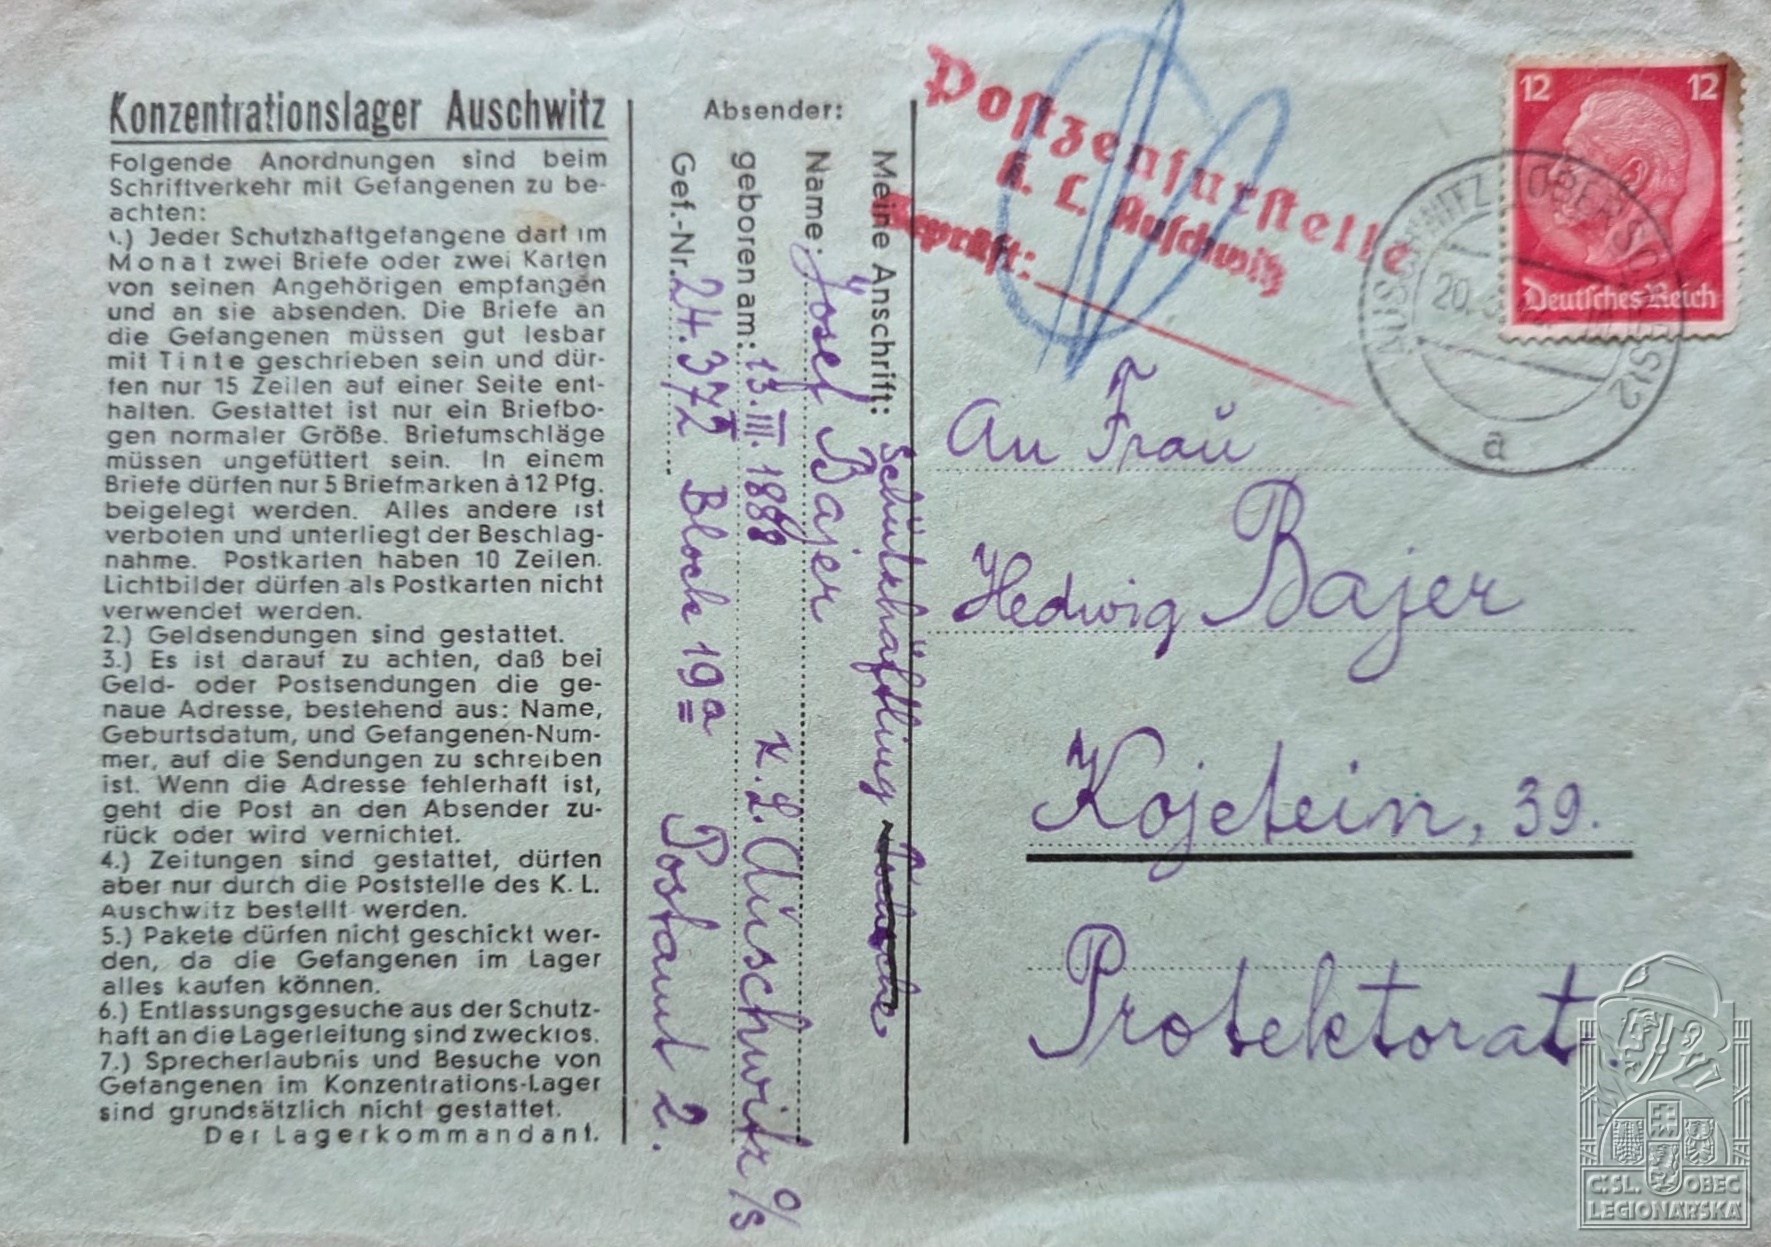 Konzentrationslager Auschwitz
Folgende Anordnungen sind beim
Schriftverkehr mit Gefangenen zu be-
achten:
1.) Jeder Schutzhaftgefangene darf im
Monat zwei Briefe oder zwei Karten
von seinen Angehörigen empfangen
und an sie absenden. Die Briefe an
die Gefangenen müssen gut lesbar
mit Tinte geschrieben sein und dür-
fen nur 15 Zeilen auf einer Seite ent-
halten. Gestattet ist nur ein Briefbo-
gen normaler Größe. Briefumschläge
müssen ungefüttert sein. In einem
Briefe dürfen nur 5 Briefmarken à 12 Pfg.
beigelegt werden. Alles andere ist
verboten und unterliegt der Beschlag-
nahme. Postkarten haben 10 Zeilen.
Lichtbilder dürfen als Postkarten nicht
verwendet werden.
2.) Geldsendungen sind gestattet.
3.) Es ist darauf zu achten, daß bei
Geld- oder Postsendungen die ge-
naue Adresse, bestehend aus: Name,
Geburtsdatum, und Gefangenen-Num-
mer, auf die Sendungen zu schreiben
ist. Wenn die Adresse fehlerhaft ist,
geht die Post an den Absender zu-
rück oder wird vernichtet.
4.) Zeitungen sind gestattet, dürfen
aber nur durch die Poststelle des K. L.
Auschwitz bestellt werden.
5.) Pakete dürfen nicht geschickt wer-
den, da die Gefangenen im Lager
alles kaufen können.
6.) Entlassungsgesuche aus der Schutz-
haft an die Lagerleitung sind zwecklos.
7.) Sprecherlaubnis und Besuche von
Gefangenen im Konzentrations-Lager
sind grundsätzlich nicht gestattet.
Der Lagerkommandant.
Absender:
Meine Anschrift: Schutzhäftling
Name: Josef Bajer
geboren am: 13. III. 1888 K. L. Auschwitz O/S
Gef.-Nr. 24.372 Block 19a Postamt 2.
Postzensurstelle
K. L. Auschwitz
Geprüft:
12 12
Deutsches Reich
AUSCHWITZ (OBERSCHLES) 2
20.
a
An Frau
Hedwig Bajer
Kojetein, 39.
Protektorat.
ČSL. OBEC
LEGIONÁŘSKÁ